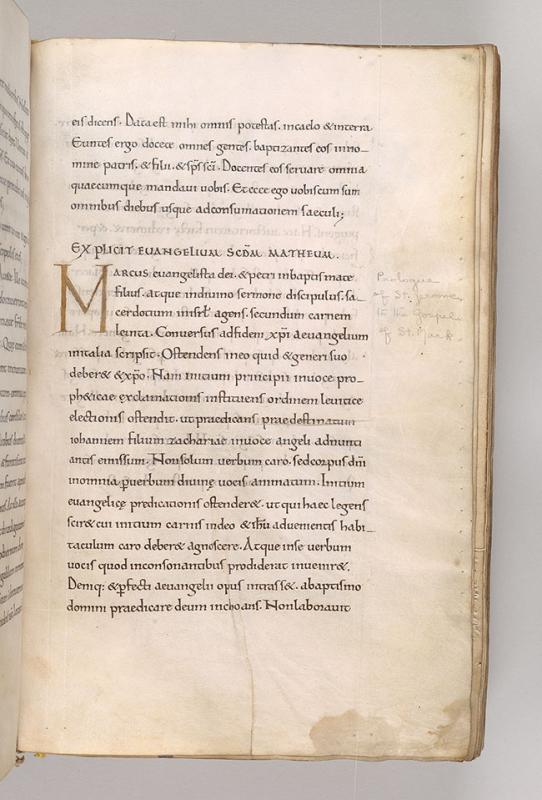 eis dicens. Data est mihi omnis potestas. incaelo & interra
Euntes ergo docete omnes gentes. baptizantes eos inno-
mine patris. & filii. & sp̄s sc̄i. Docentes eos seruare omnia
quaecumque mandaui uobis. Et ecce ego uobiscum sum
omnibus diebus usque adconsumationem saeculi;
EXPLICIT EUANGELIUM SCD̄M MATHEUM.
MARCUS euangelista dei. & petri inbaptismate
filius. atque indiuino sermone discipulus. sa-
cerdotium inisrl̄ agens. secundum carnem
leuita. Conuersus adfidem xp̄i aeuangelium
initalia scripsit. Ostendens ineo quid & generi suo
deber& & xp̄o. Nam initium principii inuoce pro-
ph&icae exclamationis instituens ordinem leuiticę
electionis ostendit. ut praedicans praedestinatum
iohannem filium zachariae inuoce angeli adnunti
antis emissum. Nonsolum uerbum caro. sedcorpus dn̄i
inomnia ꝑuerbum diuinę uocis animatum. Initium
euangelicę predicationis ostender&. ut qui haec legens
scir& cui initium carnis indeo & ih̄u aduenientis habi-
taculum caro deber& agnoscere. Atque inse uerbum
uocis quod inconsonantibus prodiderat inuenir&.
Deniq: & ꝑfecti aeuangelii opus intrass&. abaptismo
domini praedicare deum inchoans. Nonlaborauit
Prologue
of St. Jerome
to the Gospel
of St. Mark